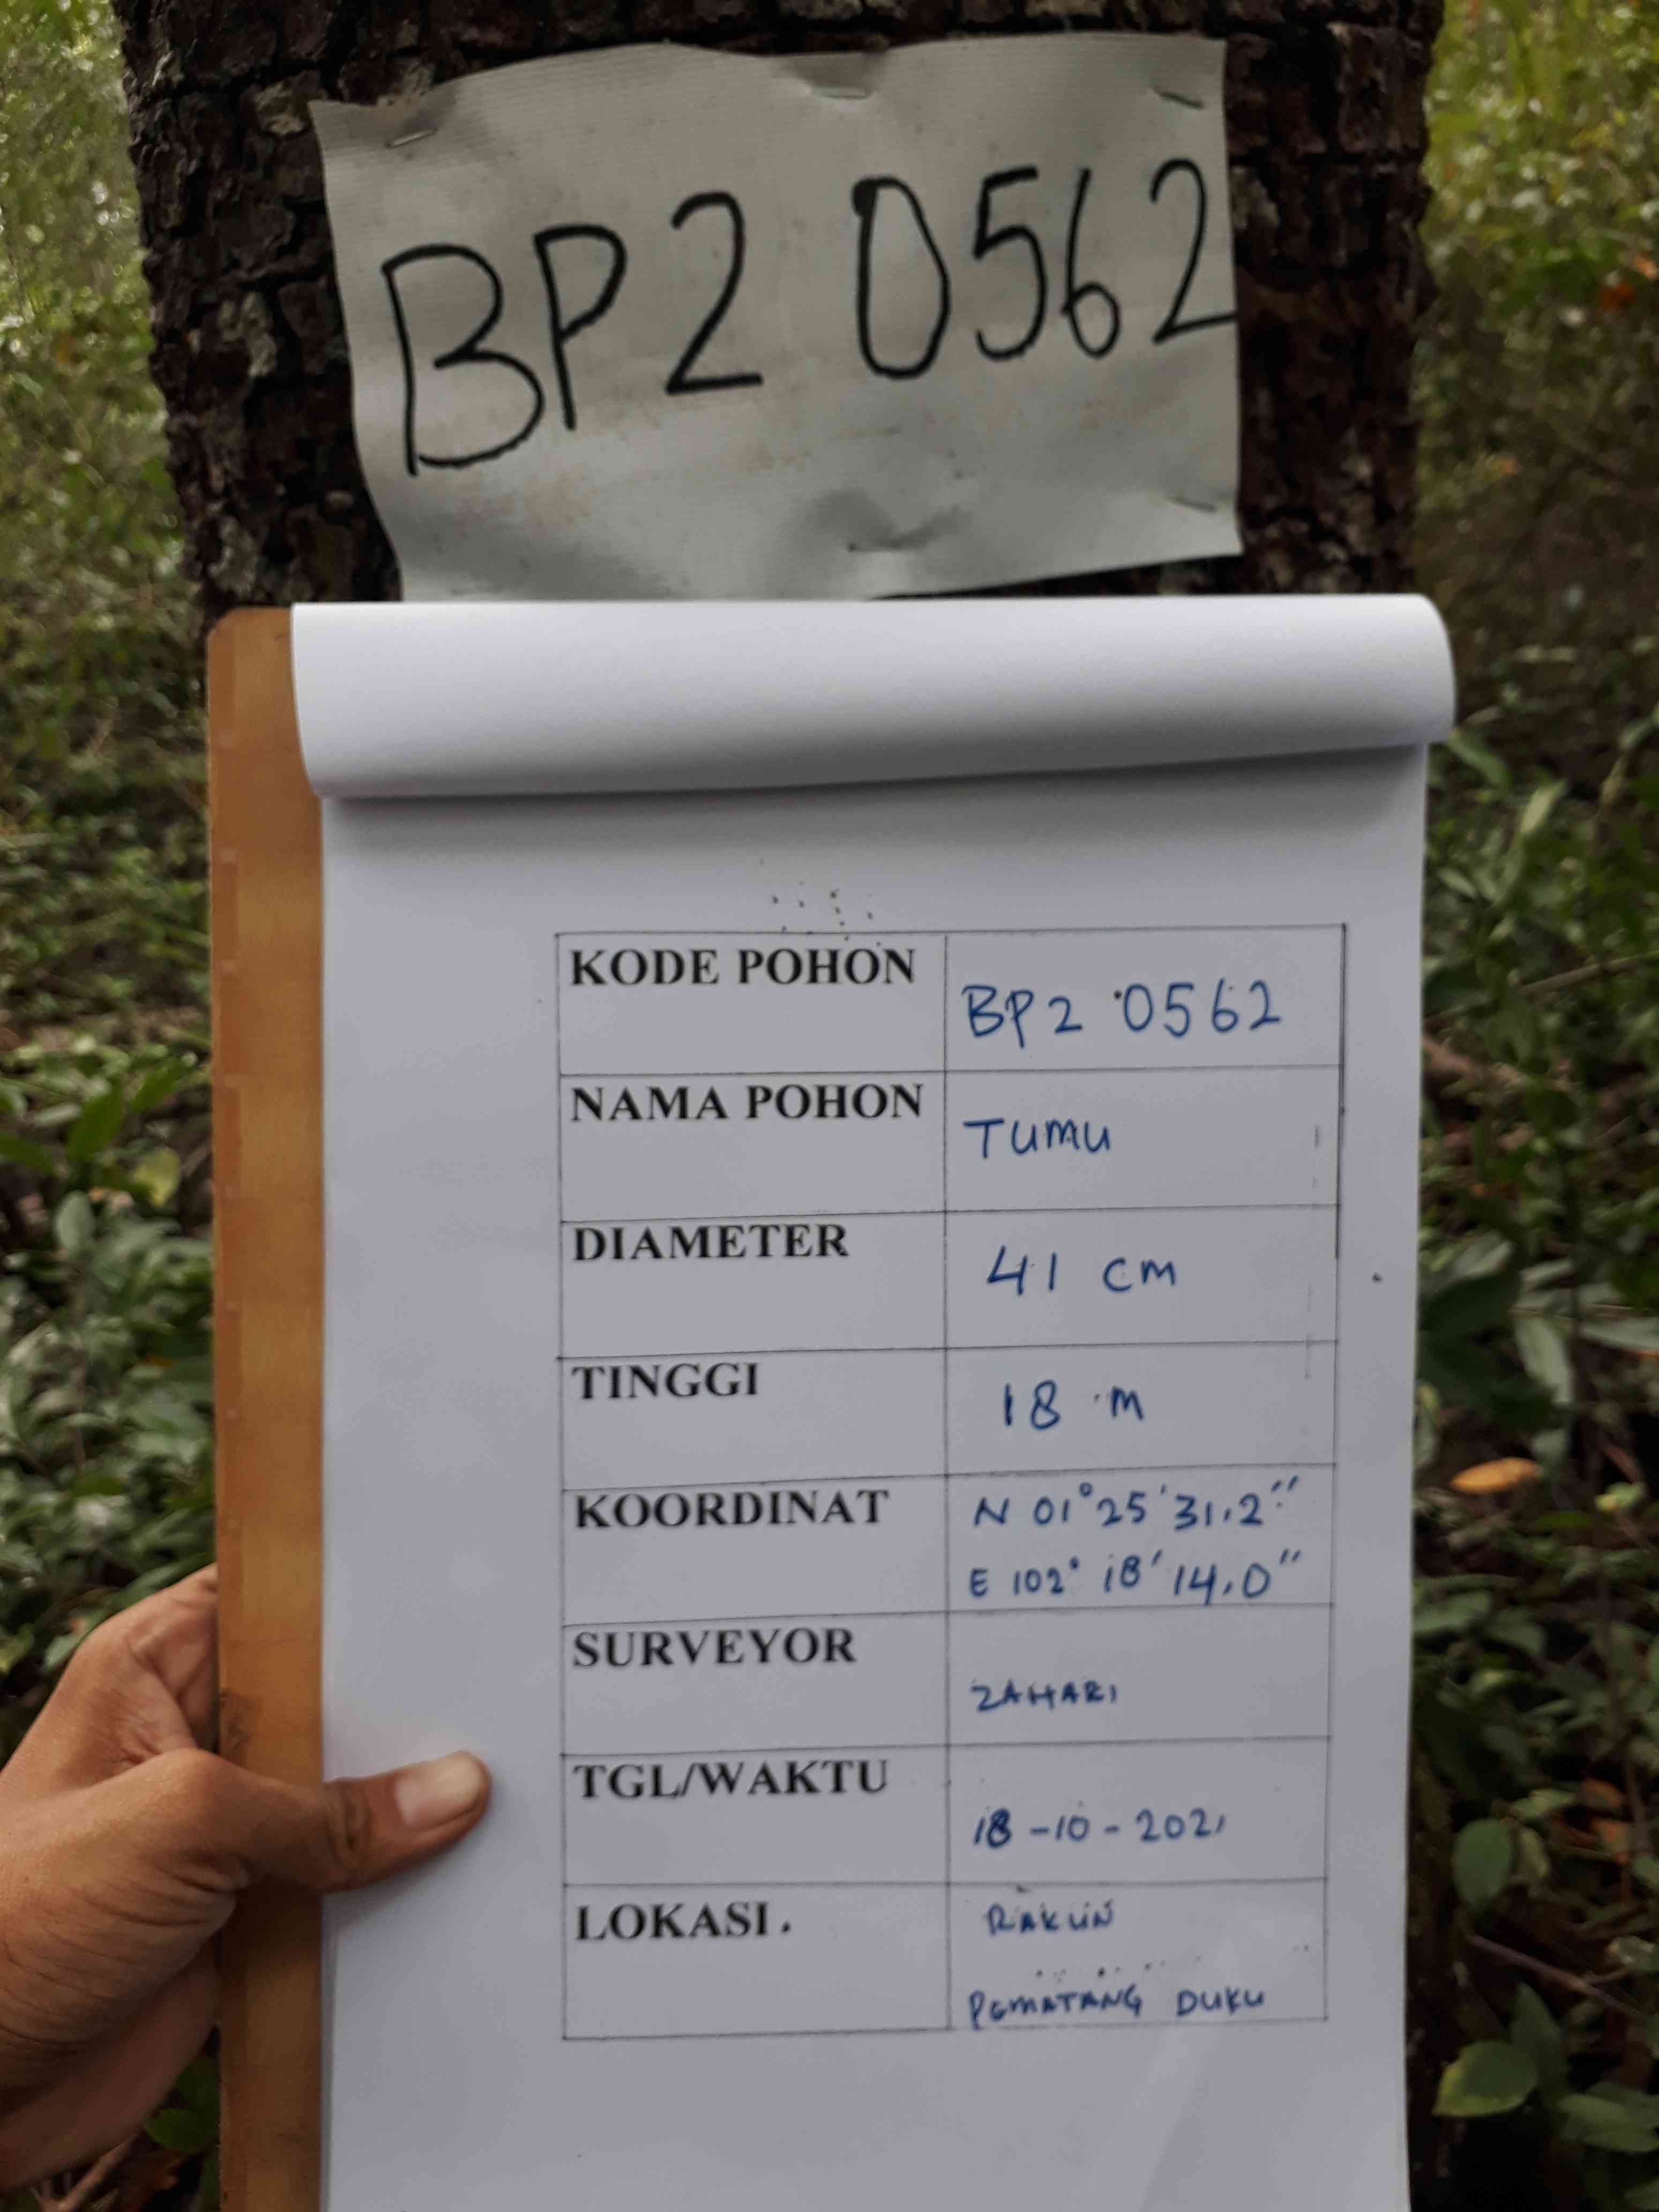 BP2 0562
KODE POHON
BP2 0562
NAMA POHON
TUMU
DIAMETER
41 cm
TINGGI
18 m
KOORDINAT
N 01°25'31,2"
E 102° 18' 14,0"
SURVEYOR
ZAHARI
TGL/WAKTU
18-10-2021
LOKASI.
RAKUN
PEMATANG DUKU